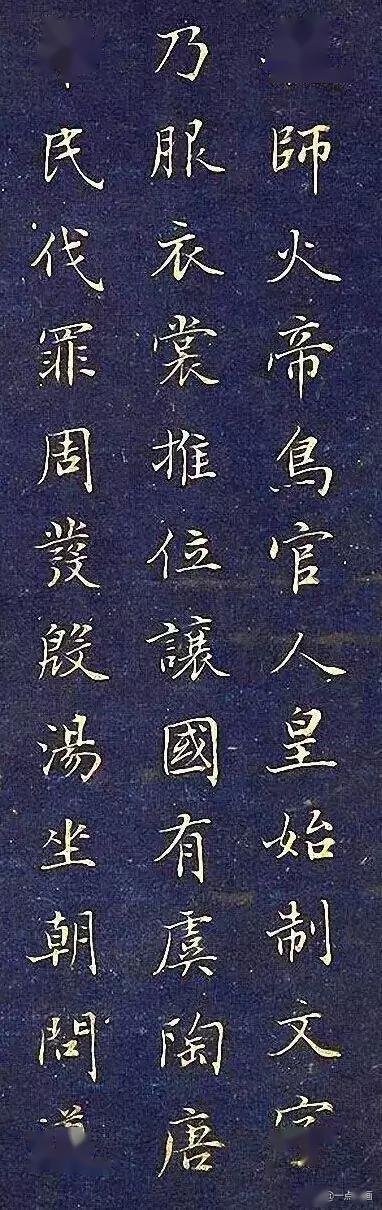 師火帝鳥官人皇始制文
乃服衣裳推位讓國有虞陶唐
民伐罪周發殷湯坐朝問
一点 画